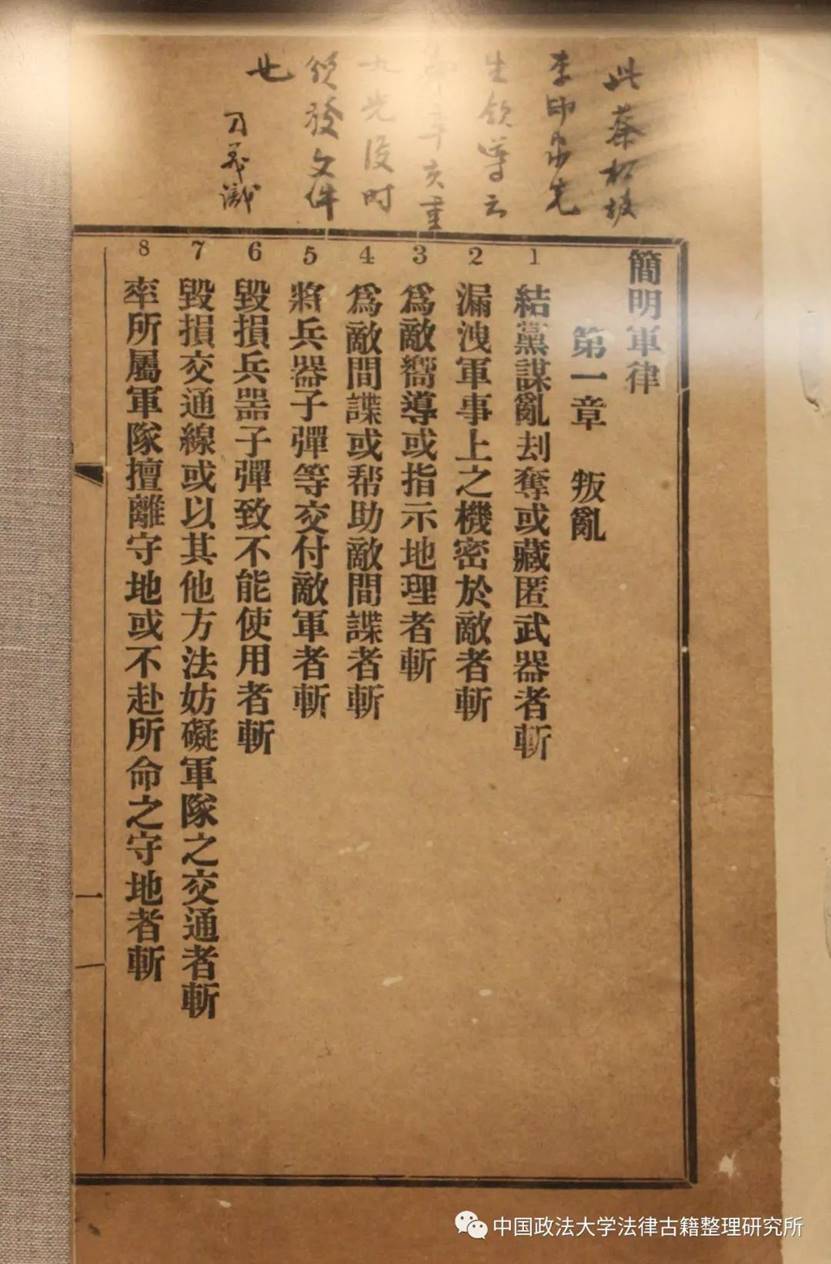 此蔡松坡
李印泉先
生領導云
南辛亥重
九光復时
頒發文件
也
簡明軍律
第一章 叛亂
1 結黨謀亂刦奪或藏匿武器者斬
2 漏洩軍事上之機密於敵者斬
3 爲敵嚮導或指示地理者斬
4 爲敵間諜或帮助敵間諜者斬
5 將兵器子彈等交付敵軍者斬
6 毀損兵器子彈致不能使用者斬
7 毀損交通線或以其他方法妨礙軍隊之交通者斬
8 率所屬軍隊擅離守地或不赴所命之守地者斬
一
中国政法大学法律古籍整理研究所